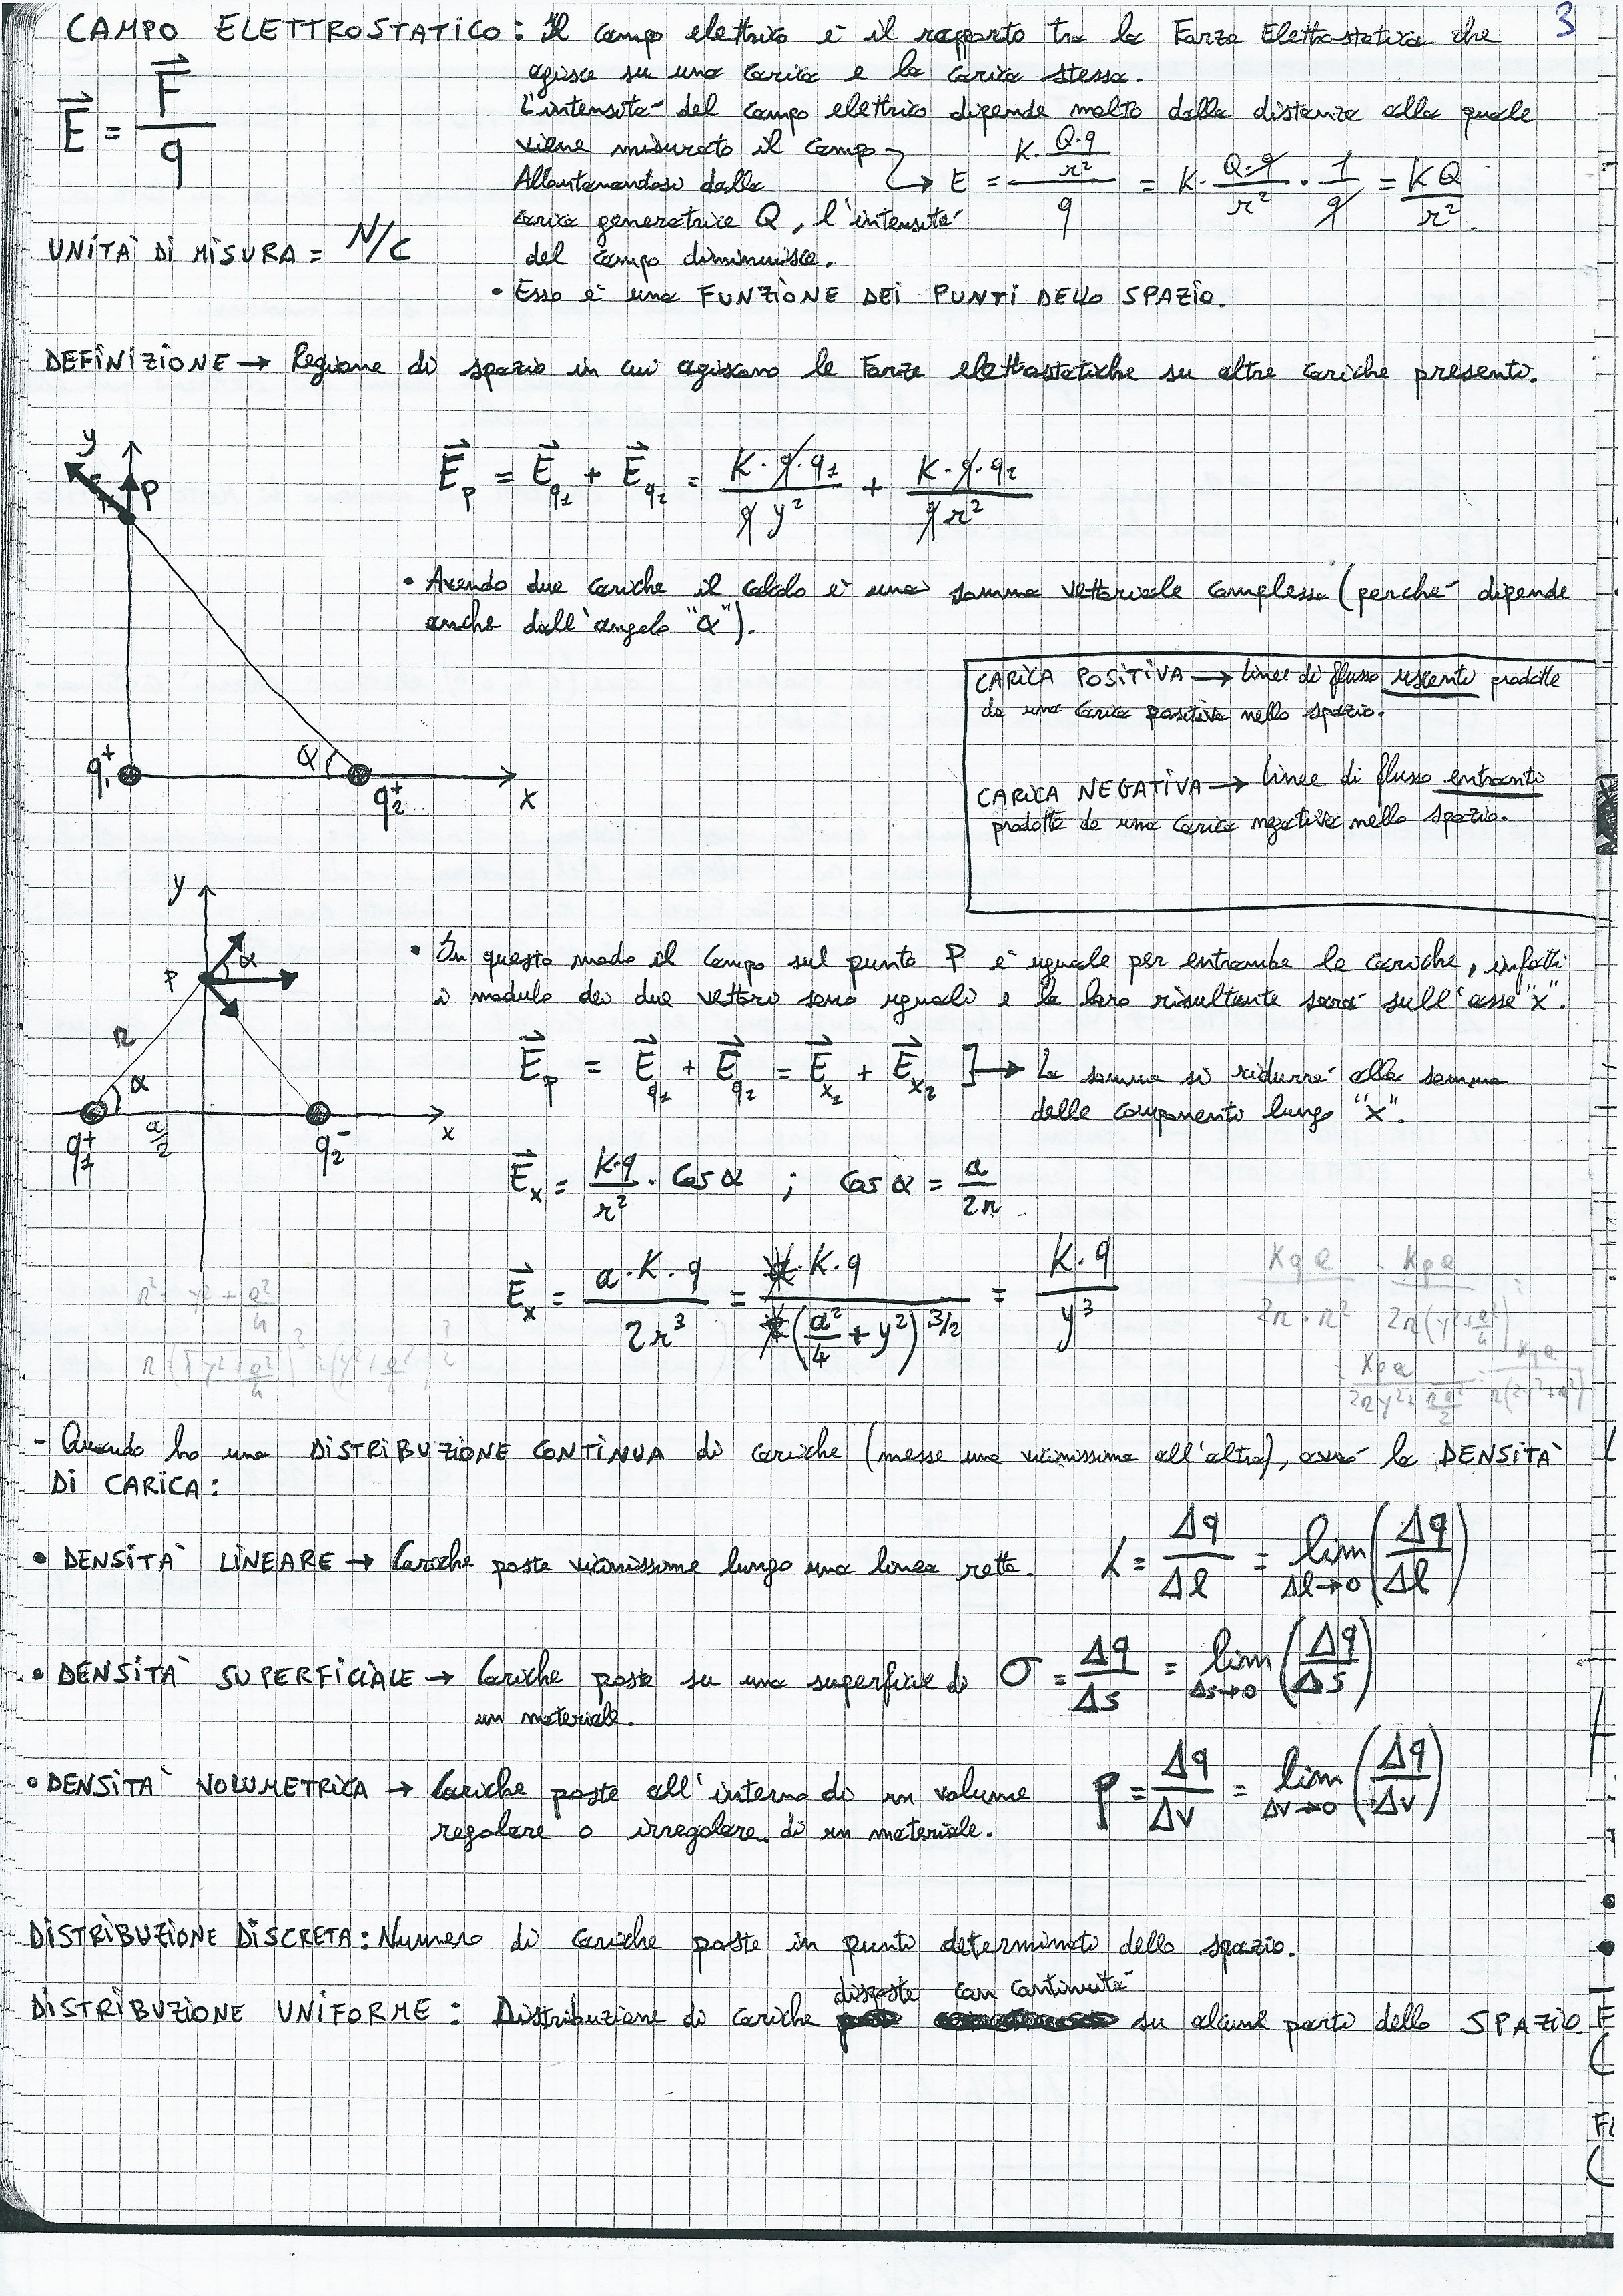 3
CAMPO ELETTROSTATICO: Il campo elettrico è il rapporto tra la Forza Elettrostatica che
agisce su una carica e la carica stessa.
E = F/q
L'intensità del campo elettrico dipende molto dalla distanza alla quale
viene misurato il campo → E = (K·Q·q/r²)/q = K·Q·q/r² · 1/q = KQ/r².
Allontanandosi dalla
carica generatrice Q, l'intensità
del campo diminuisce.
UNITÀ DI MISURA = N/C
• Esso è una FUNZIONE DEI PUNTI DELLO SPAZIO.
DEFINIZIONE → Regione di spazio in cui agiscono le Forze elettrostatiche su altre cariche presenti.
y
P
E_p = E_q1 + E_q2 = K·q·q1/q y² + K·q·q2/q r²
• Avendo due cariche il calcolo è una somma vettoriale complessa (perché dipende
anche dall'angelo "α").
q1+ α q2+ x
CARICA POSITIVA → linee di flusso uscenti prodotte
da una carica positiva nello spazio.
CARICA NEGATIVA → linee di flusso entranti
prodotte da una carica negativa nello spazio.
y
P α
r
α
q1+ a/2 q2- x
• In questo modo il campo sul punto P è uguale per entrambe le cariche, infatti
i modulo dei due vettori sono uguali e la loro risultante sarà sull'asse "x".
E_p = E_q1 + E_q2 = E_x1 + E_x2 ]→ La somma si ridurrà alla somma
delle componenti lungo "x".
E_x = K·q/r² · cos α ; cos α = a/2r
E_x = a·K·q/2r³ = a·K·q/(a²/4 + y²)^3/2 = K·q/y³
- Quando ho una DISTRIBUZIONE CONTINUA di cariche (messe una vicinissima all'altra), avrò la DENSITÀ
DI CARICA:
• DENSITÀ LINEARE → Cariche poste vicinissime lungo una linea retta. λ = Δq/Δl = lim Δl→0 (Δq/Δl)
• DENSITÀ SUPERFICIALE → Cariche poste su una superficie di σ = Δq/Δs = lim Δs→0 (Δq/Δs)
un materiale.
• DENSITÀ VOLUMETRICA → Cariche poste all'interno di un volume ρ = Δq/Δv = lim Δv→0 (Δq/Δv)
regolare o irregolare di un materiale.
DISTRIBUZIONE DISCRETA: Numero di cariche poste in punti determinati dello spazio.
DISTRIBUZIONE UNIFORME: Distribuzione di cariche disposte con continuità su alcune parti dello SPAZIO